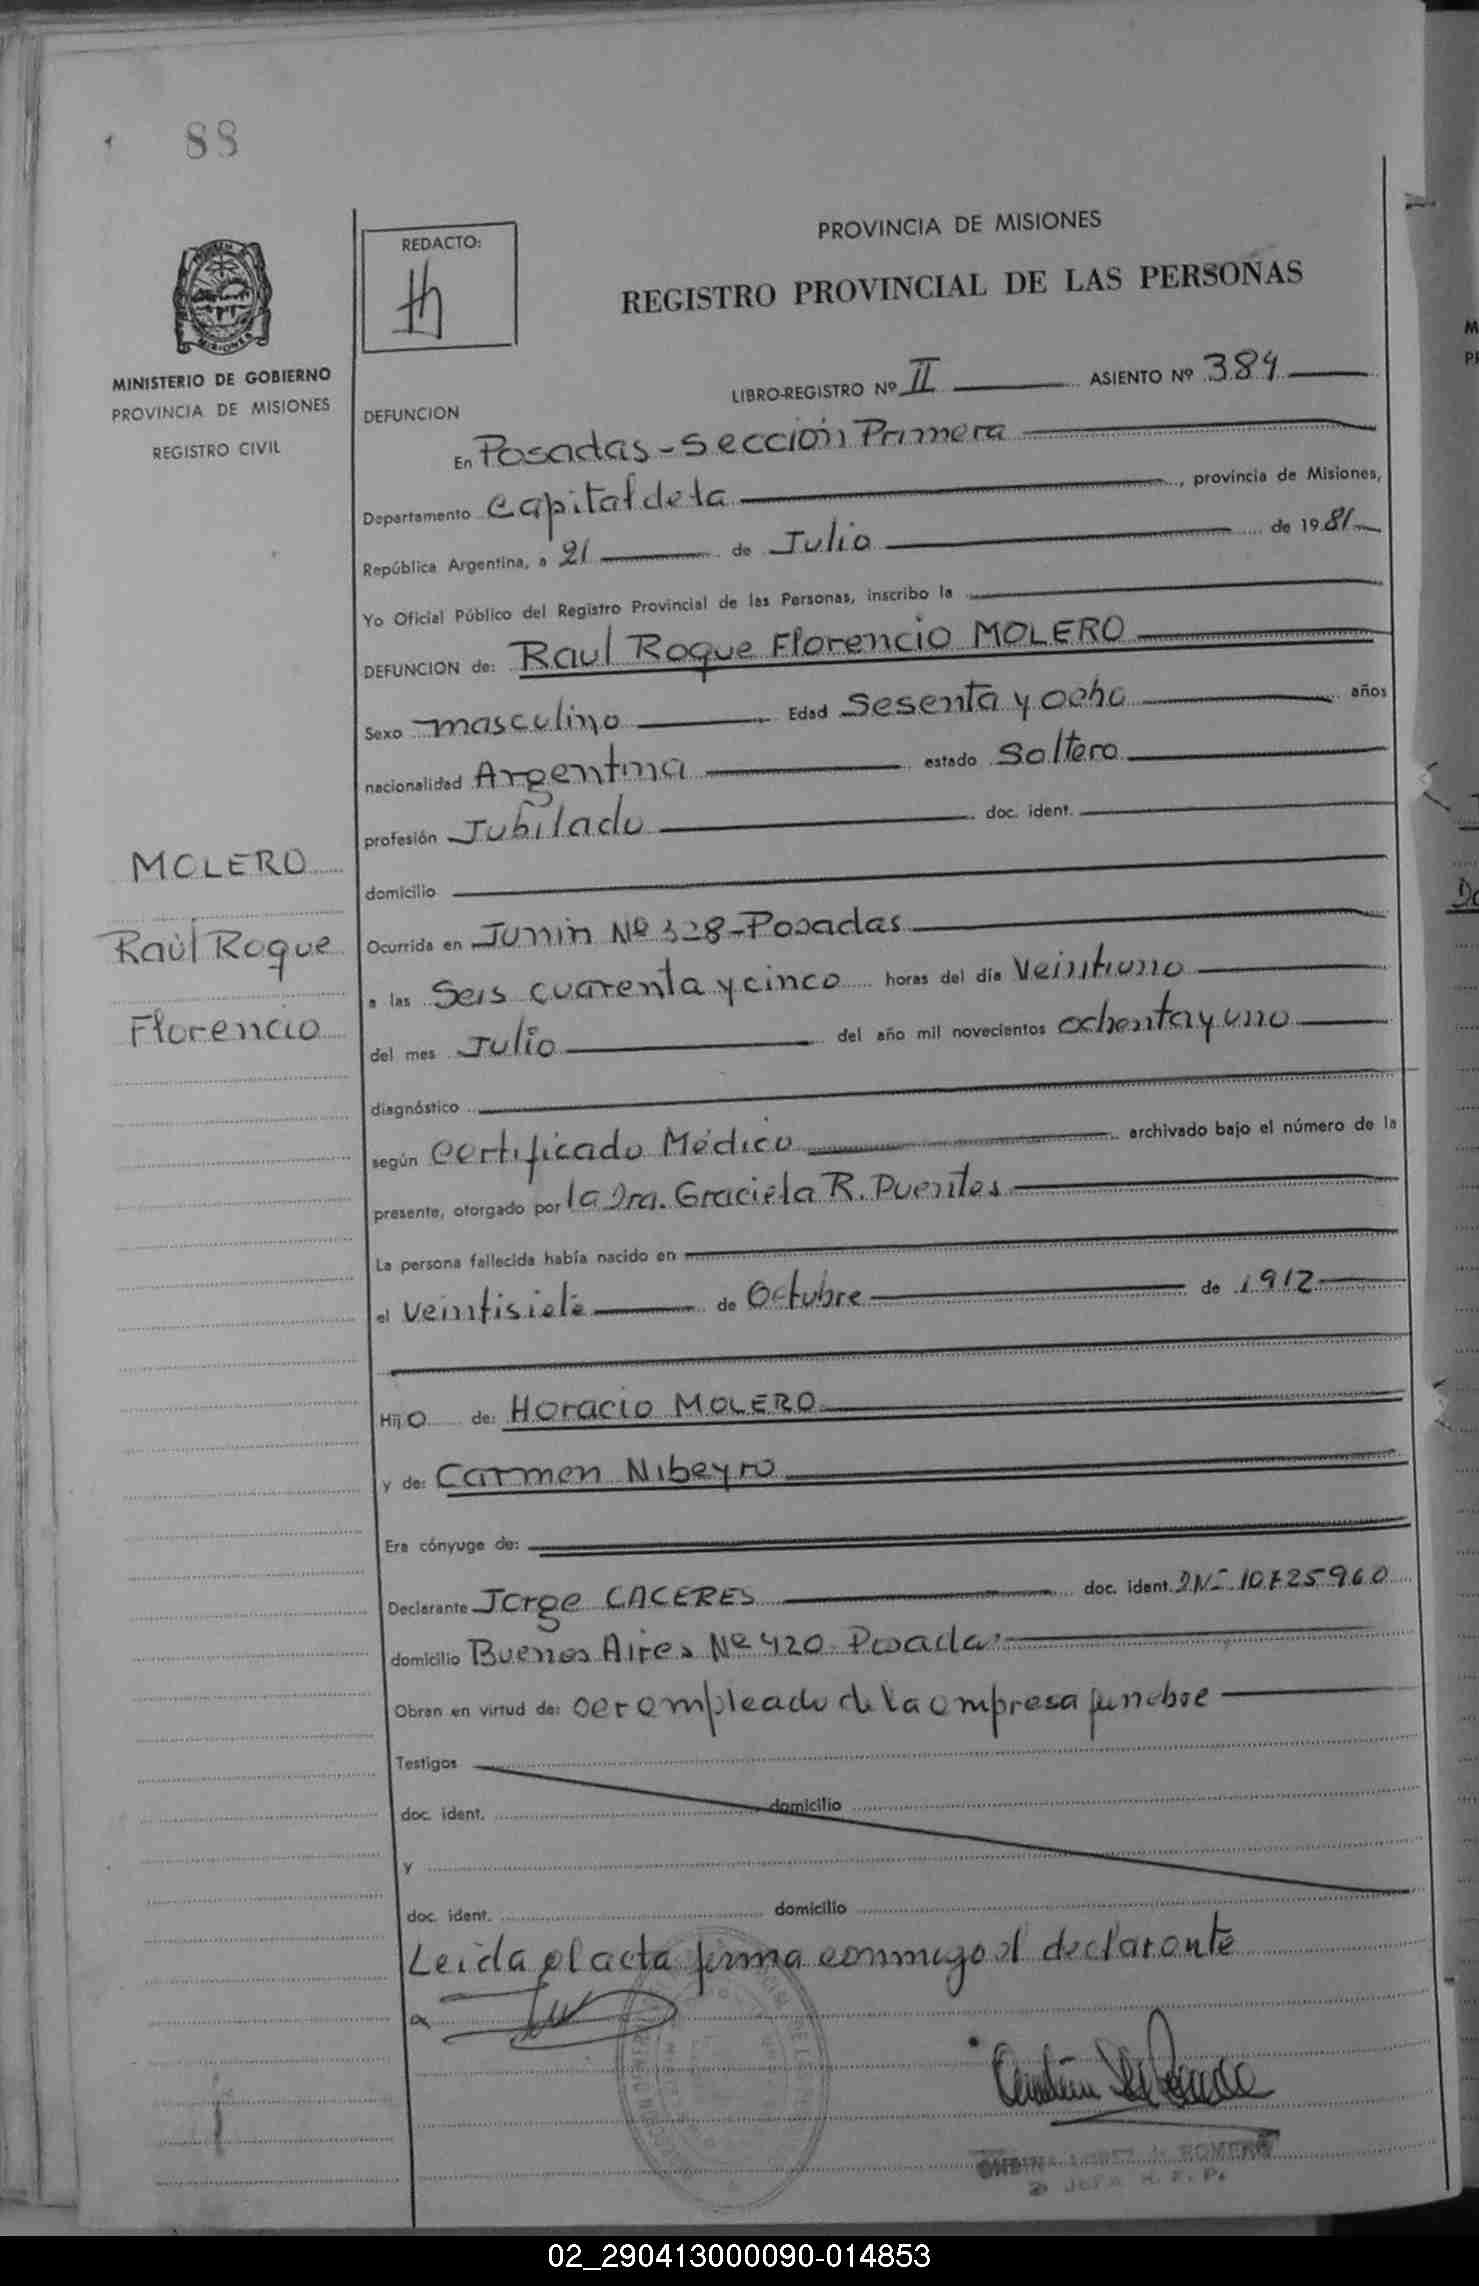 88
REDACTO:
PROVINCIA DE MISIONES
REGISTRO PROVINCIAL DE LAS PERSONAS
MISIONES
MINISTERIO DE GOBIERNO
PROVINCIA DE MISIONES
REGISTRO CIVIL
LIBRO-REGISTRO Nº II ASIENTO Nº 384
DEFUNCION
En Posadas - Sección Primera
Departamento Capital de la, provincia de Misiones,
República Argentina, a 21 de Julio de 1981
Yo Oficial Público del Registro Provincial de las Personas, inscribo la
DEFUNCION de: Raul Roque Florencio MOLERO
Sexo masculino Edad Sesenta y ocho años
nacionalidad Argentina estado Soltero
profesión Jubilado doc. ident.
MOLERO
domicilio
Raúl Roque
Ocurrida en Junin Nº 328-Posadas
a las Seis cuarenta y cinco horas del día Veintiuno
Florencio
del mes Julio del año mil novecientos ochenta y uno
diagnóstico
según Certificado Médico archivado bajo el número de la
presente, otorgado por la Dra. Graciela R. Puentes
La persona fallecida había nacido en
el Veintisiete de Octubre de 1912
Hijo de: Horacio MOLERO
y de: Carmen Nibeyro
Era cónyuge de:
Declarante Jorge CACERES doc. ident. DNI 10725960
domicilio Buenos Aires Nº 420 Posadas
Obran en virtud de: ser empleado de la empresa funebre
Testigos
doc. ident. domicilio
y
doc. ident. domicilio
Leida el acta firma conmigo el declarante
LOPEZ de ROMERO
JEFA R. P.
02_290413000090-014853